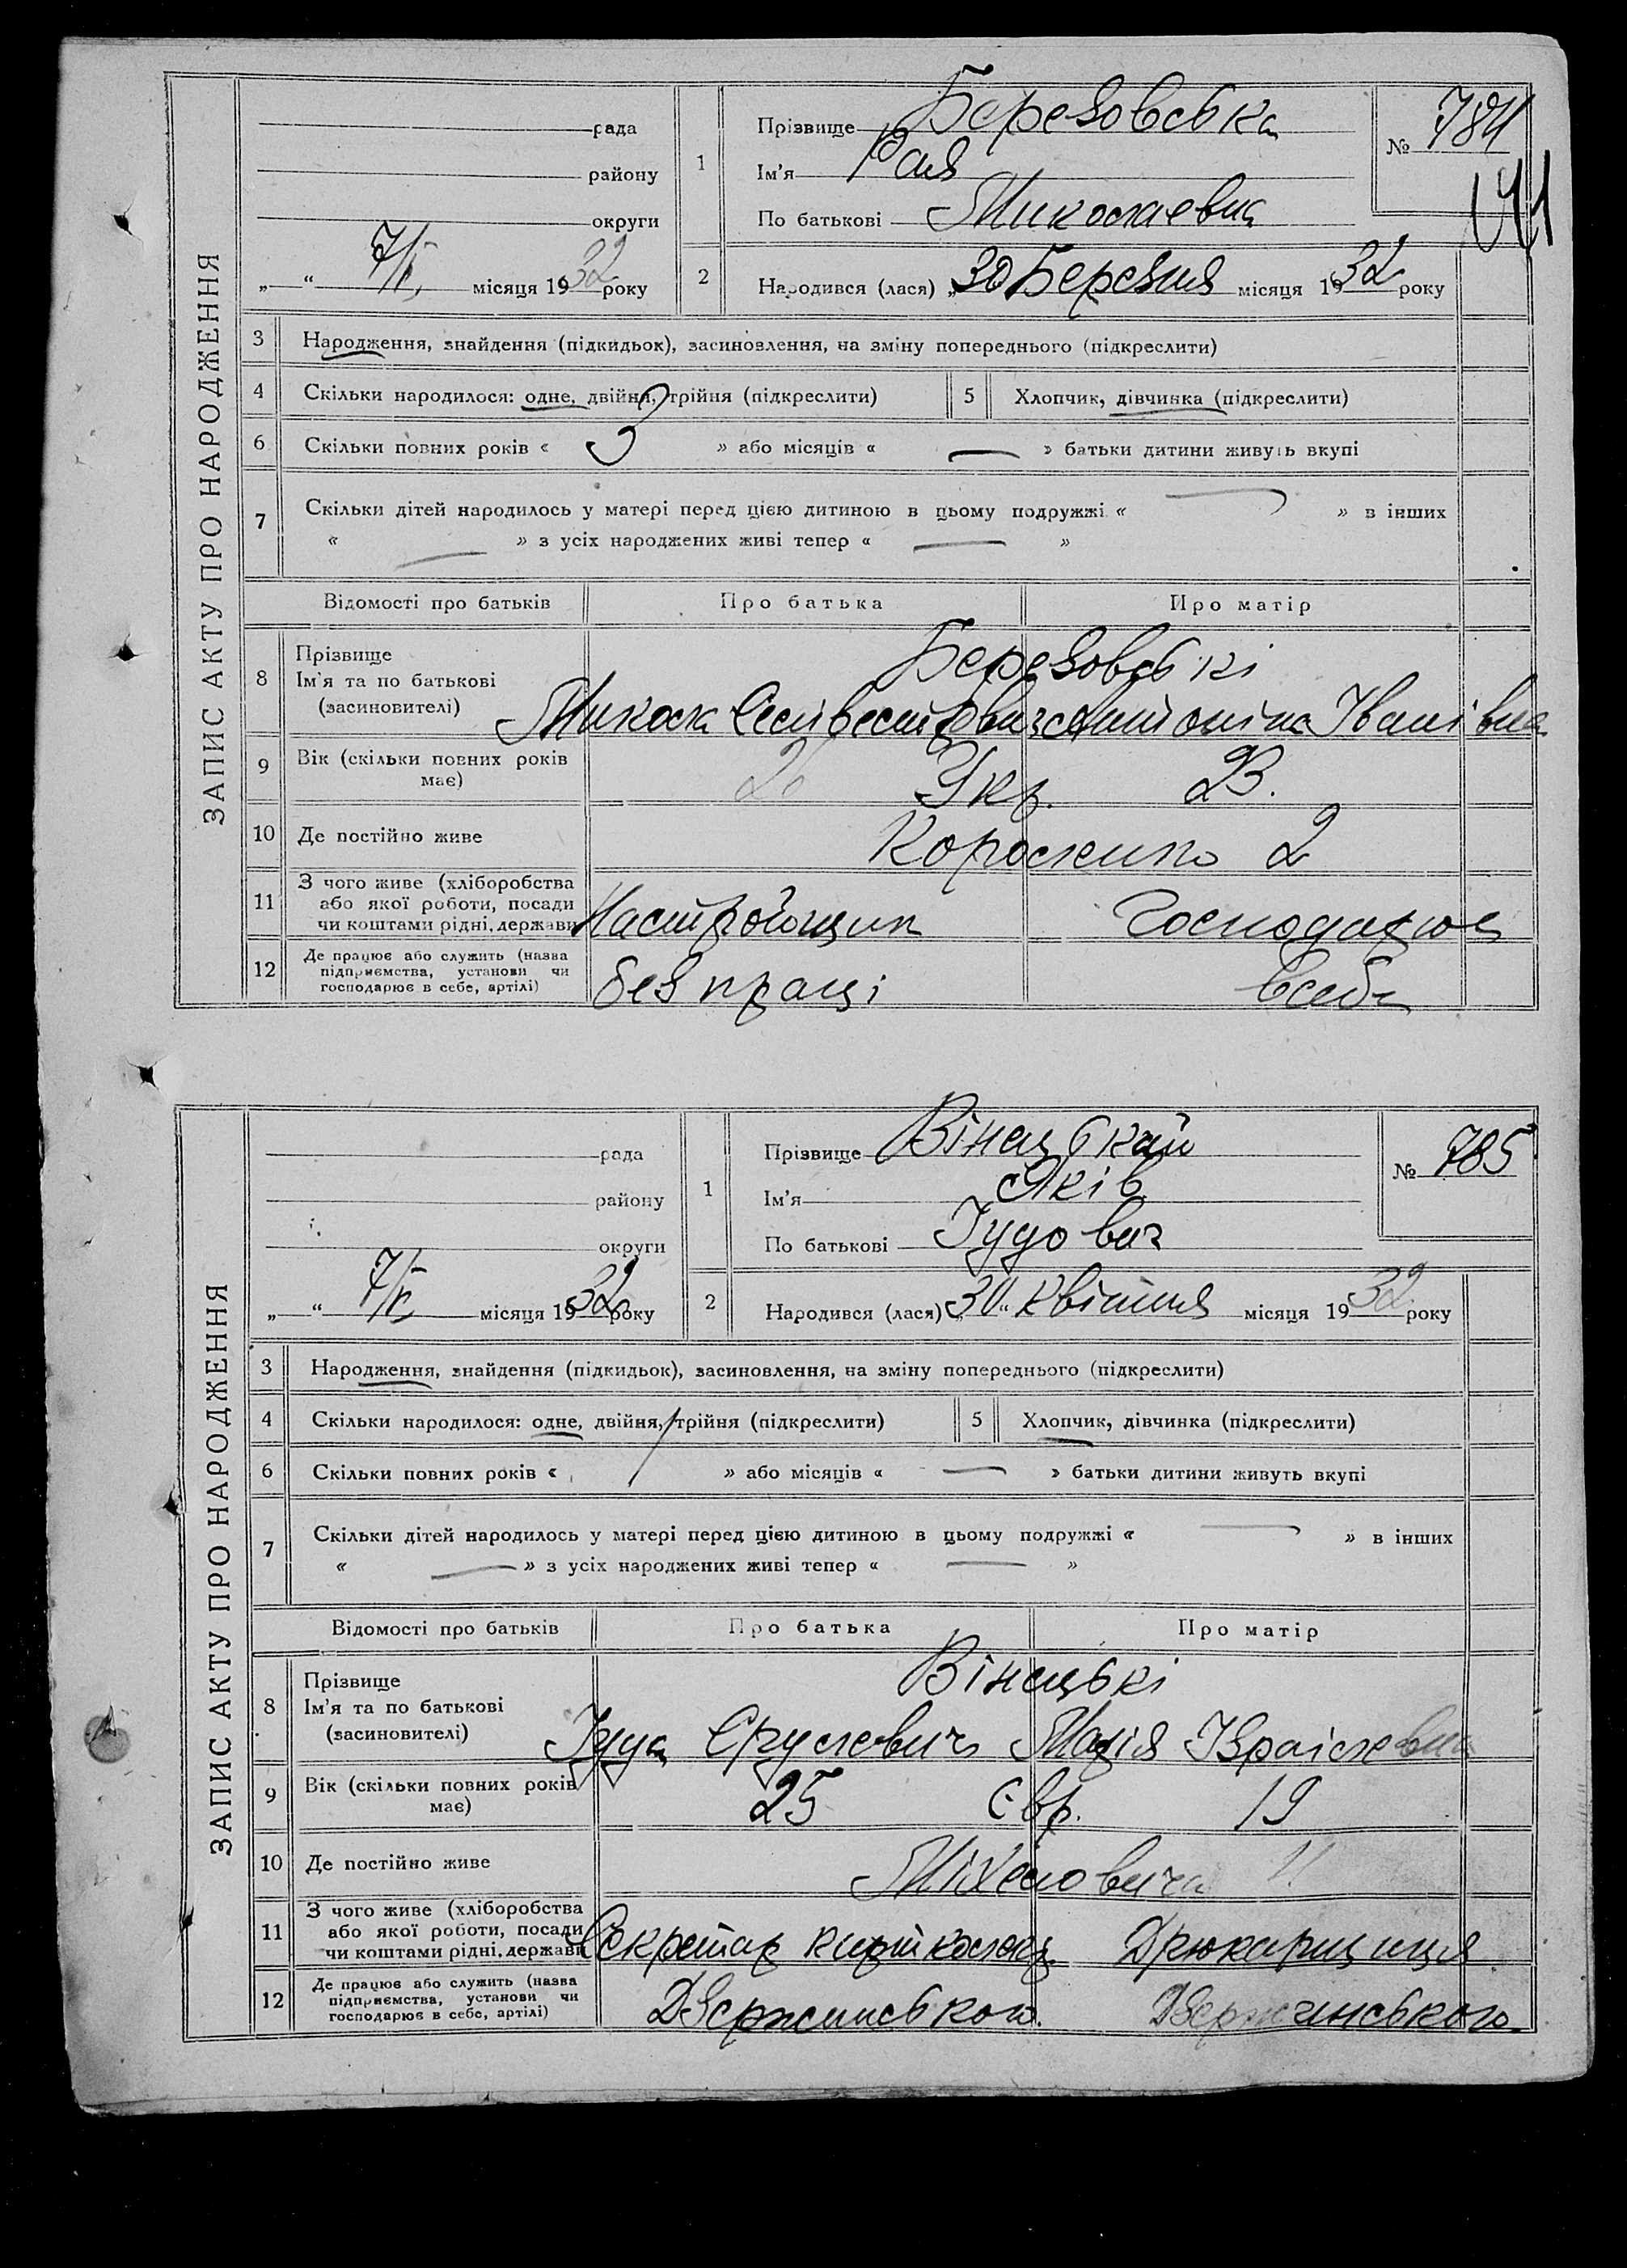 ЗАПИС АКТУ ПРО НАРОДЖЕННЯ
рада
району
округи
„ “ 7/V місяця 1932 року
1
Прізвище Березовська
Ім'я Рая
По батькові Миколаевна
№ 784
141
2
Народився (лася) „30 Березня місяця 1932 року
3 Народження, знайдення (підкидьок), засиновлення, на зміну попереднього (підкреслити)
4 Скільки народилося: одне, двійня, трійня (підкреслити) 5 Хлопчик, дівчинка (підкреслити)
6 Скільки повних років « 3 » або місяців « — » батьки дитини живуть вкупі
7 Скільки дітей народилось у матері перед цією дитиною в цьому подружжі « — » в інших
« — » з усіх народжених живі тепер « — »
Відомості про батьків Про батька Про матір
8 Прізвище Березовські
Ім'я та по батькові
(засиновителі) Микола Сельвестрович Антоніна Івановна
9 Вік (скільки повних років має) 26 Укр.
10 Де постійно живе Короленко 2
11 З чого живе (хліборобства або якої роботи, посади чи коштами рідні, держави Настройщик Господарює
12 Де працює або служить (назва підприємства, установи чи господарює в себе, артілі) без праці в себе
ЗАПИС АКТУ ПРО НАРОДЖЕННЯ
рада
району
округи
„ “ 7/V місяця 1932 року
1
Прізвище Вінацький
Ім'я Яків
По батькові Іудович
№ 785
2
Народився (лася) „30“ квітня місяця 1932 року
3 Народження, знайдення (підкидьок), засиновлення, на зміну попереднього (підкреслити)
4 Скільки народилося: одне, двійня, трійня (підкреслити) 5 Хлопчик, дівчинка (підкреслити)
6 Скільки повних років « 1 » або місяців « — » батьки дитини живуть вкупі
7 Скільки дітей народилось у матері перед цією дитиною в цьому подружжі « — » в інших
« — » з усіх народжених живі тепер « — »
Відомості про батьків Про батька Про матір
8 Прізвище Вінацькі
Ім'я та по батькові
(засиновителі) Іуда Срулевич Марія Ізраілевна
9 Вік (скільки повних років має) 25 Євр. 19
10 Де постійно живе
11 З чого живе (хліборобства або якої роботи, посади чи коштами рідні, держави Секретар Друкарщиця
12 Де працює або служить (назва підприємства, установи чи господарює в себе, артілі) Дзержинського. Дзержинського.